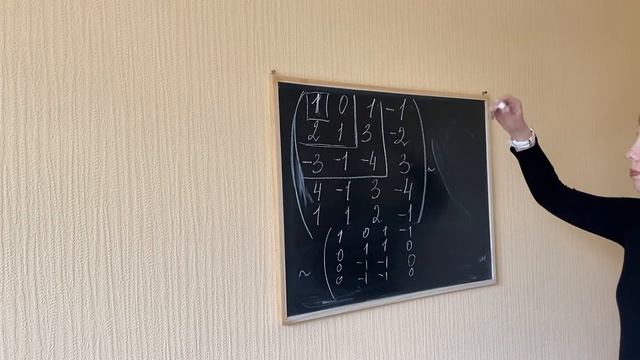 1 0 1 -1
2 1 3 -2
-3 -1 -4 3 ~
4 -1 3 -4
1 1 2 -1
1 0 1 -1
0 1 1 0
~ 0 -1 -1 0
0 -1 -1 0